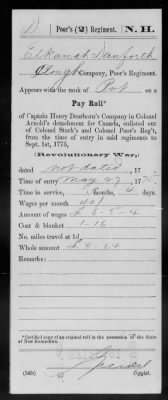 D | Poor's (2) Regiment. | N. H.
Elkanah Danforth
Clough Company, Poor's Regiment.
Appears with the rank of Pvt on a
Pay Roll*
of Captain Henry Dearborn's Company in Colonel
Arnold's detachment for Canada, enlisted out
of Colonel Stark's and Colonel Poor's Reg'ts,
from the time of entry in said regiments to
Sept. 1st, 1775,
(Revolutionary War,)
dated not dated, 17
Time of entry May 27, 1775.
Time in service, Months, 4 days.
Wages per month 40/
Amount of wages £ 6-5-4
Cost & blanket 1-16
No. miles travel at 1d.
Whole amount £ 8.1.4
Remarks:
*Certified copy of an original roll in the possession of the State of
New Hampshire.
(546i) Copyist.